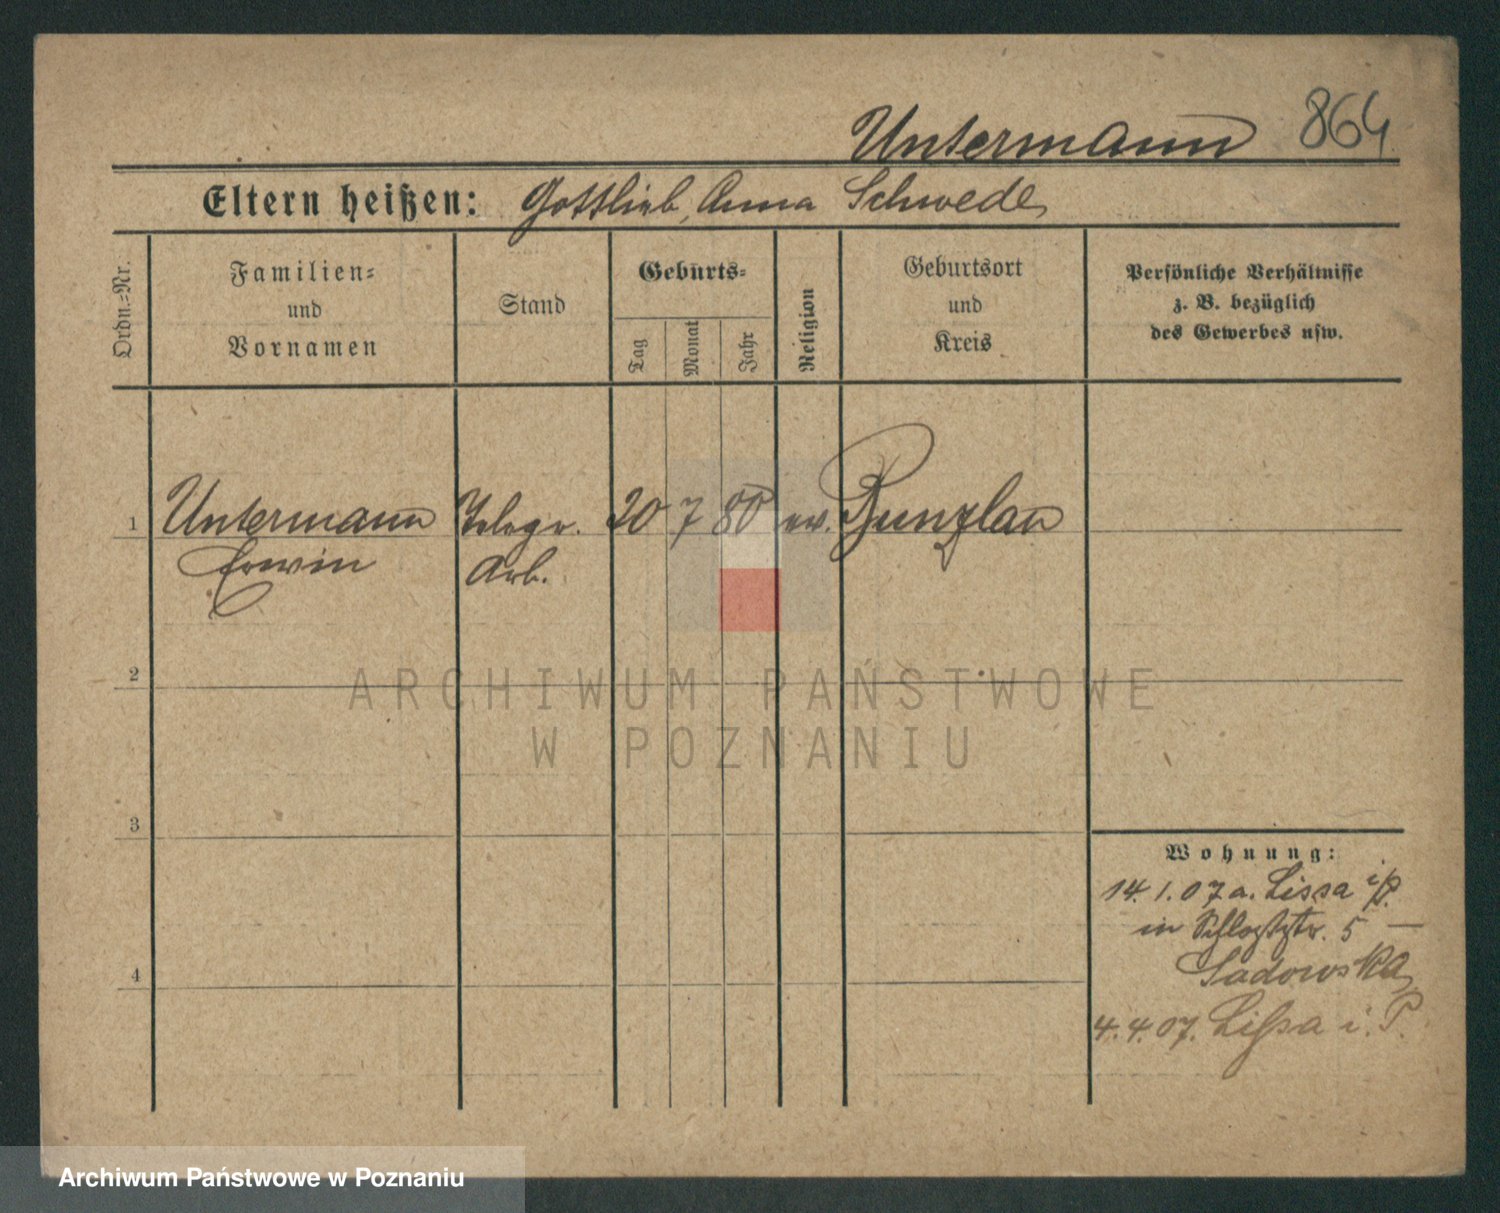 Untermann 864
Eltern heißen: Gottlieb, Anna Schwede
Ordn.-Nr.
Familien-
und
Vornamen
Stand
Geburts-
Tag
Monat
Jahr
Religion
Geburtsort
und
Kreis
Persönliche Verhältnisse
z. B. bezüglich
des Gewerbes usw.
1 Untermann Telegr. 20 7 80 ev. Bunzlau
Erwin Arb.
2
ARCHIWUM PAŃSTWOWE
W POZNANIU
3
Wohnung:
14.1.07 a. Lissa i/P.
in Schloßstr. 5 —
Sadowska
4
4.4.07. Lissa i. P.
Archiwum Państwowe w Poznaniu